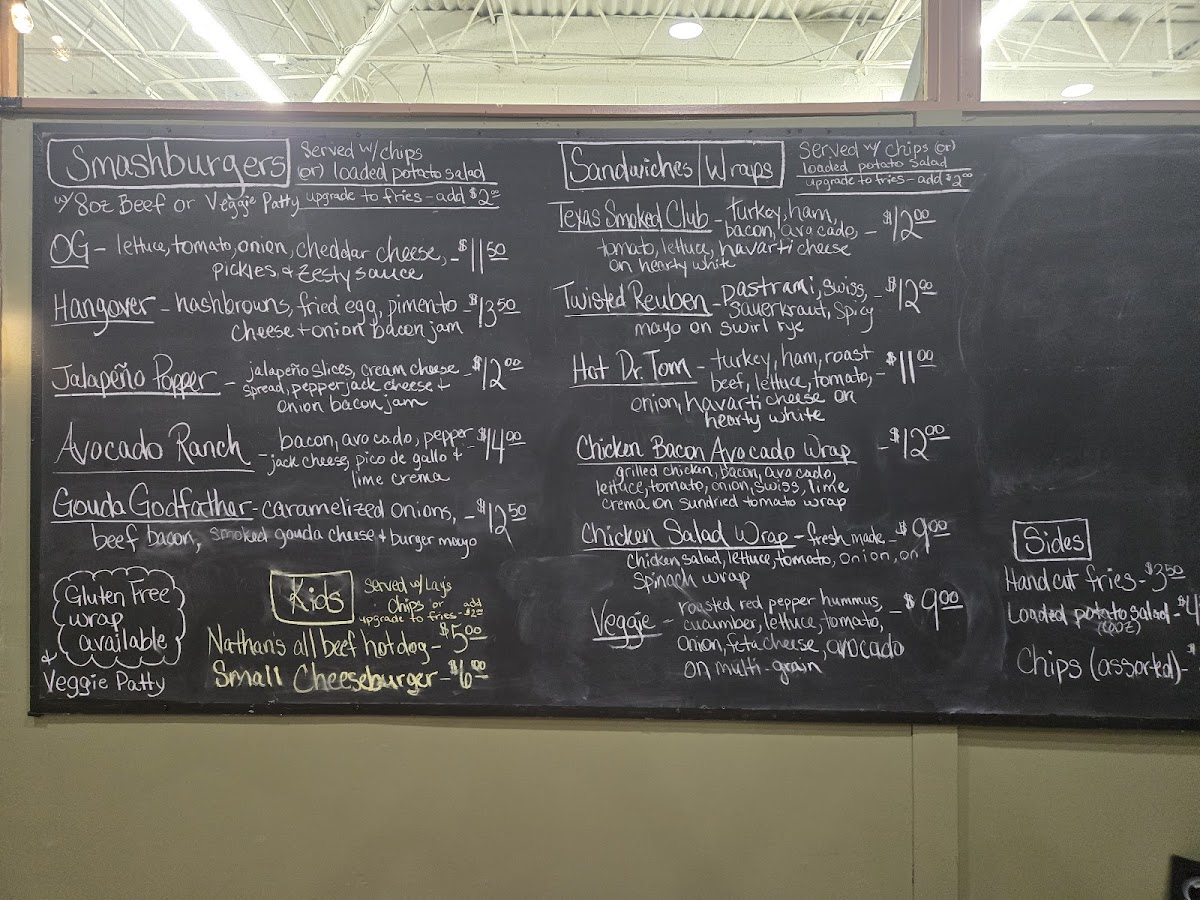 Smashburgers
Served w/chips
(or) loaded potato salad
upgrade to fries - add $2.00
w/ 8oz Beef or Veggie Patty
OG - lettuce, tomato, onion, cheddar cheese, - $11.50
pickles, & zesty sauce
Hangover - hashbrowns, fried egg, pimento - $13.50
cheese + onion bacon jam
Jalapeño Popper - jalapeño slices, cream cheese - $12.00
spread, pepperjack cheese +
onion bacon jam
Avocado Ranch - bacon, avocado, pepper - $14.00
jack cheese, pico de gallo +
lime crema
Gouda Godfather - caramelized onions, - $12.50
beef bacon, smoked gouda cheese + burger mayo
Gluten Free
wrap
available
& Veggie Patty
Kids
Served w/ Lay's
chips or add
upgrade to fries - $2.00
Nathan's all beef hotdog - $5.00
Small Cheeseburger - $6.00
Sandwiches | Wraps
Served w/ chips (or)
loaded potato salad
upgrade to fries - add $2.00
Texas Smoked Club - turkey, ham,
bacon, avocado, - $12.00
tomato, lettuce, havarti cheese
on hearty white
Twisted Reuben - pastrami, swiss, - $12.00
sauerkraut, spicy
mayo on swirl rye
Hot Dr. Tom - turkey, ham, roast
beef, lettuce, tomato, - $11.00
onion, havarti cheese on
hearty white
Chicken Bacon Avocado Wrap - $12.00
grilled chicken, bacon, avocado,
lettuce, tomato, onion, swiss, lime
crema on sundried tomato wrap
Chicken Salad Wrap - fresh made - $9.00
chicken salad, lettuce, tomato, onion, on
spinach wrap
Veggie - roasted red pepper hummus, - $9.00
cucumber, lettuce, tomato,
onion, feta cheese, avocado
on multi-grain
Sides
Handcut fries - $3.50
Loaded potato salad - $
Chips (assorted) - $